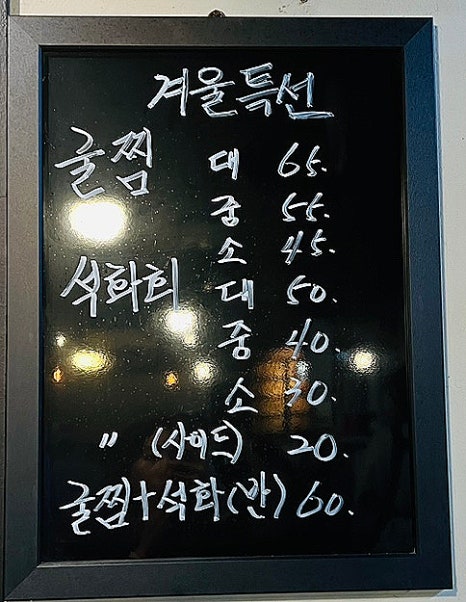 겨울특선
굴찜 대 65.
중 55.
소 45.
석화회 대 50.
중 40.
소 30.
" (사이드) 20.
굴찜+석화(반) 60.